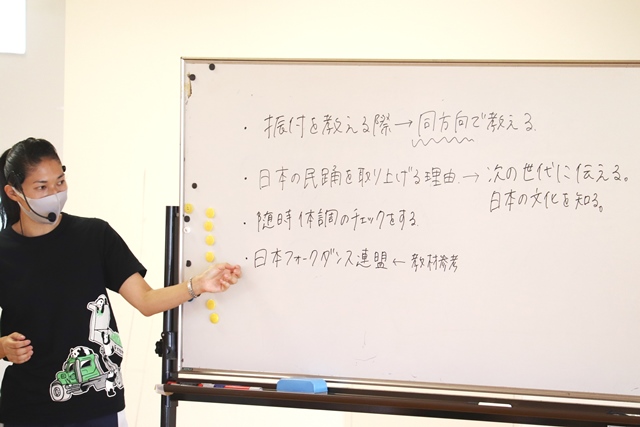 ・振付を教える際→同方向で教える.
・日本の民踊を取り上げる理由.→次の世代に伝える。
日本の文化を知る。
・随時体調のチェックをする.
・日本フォークダンス連盟←教材参考